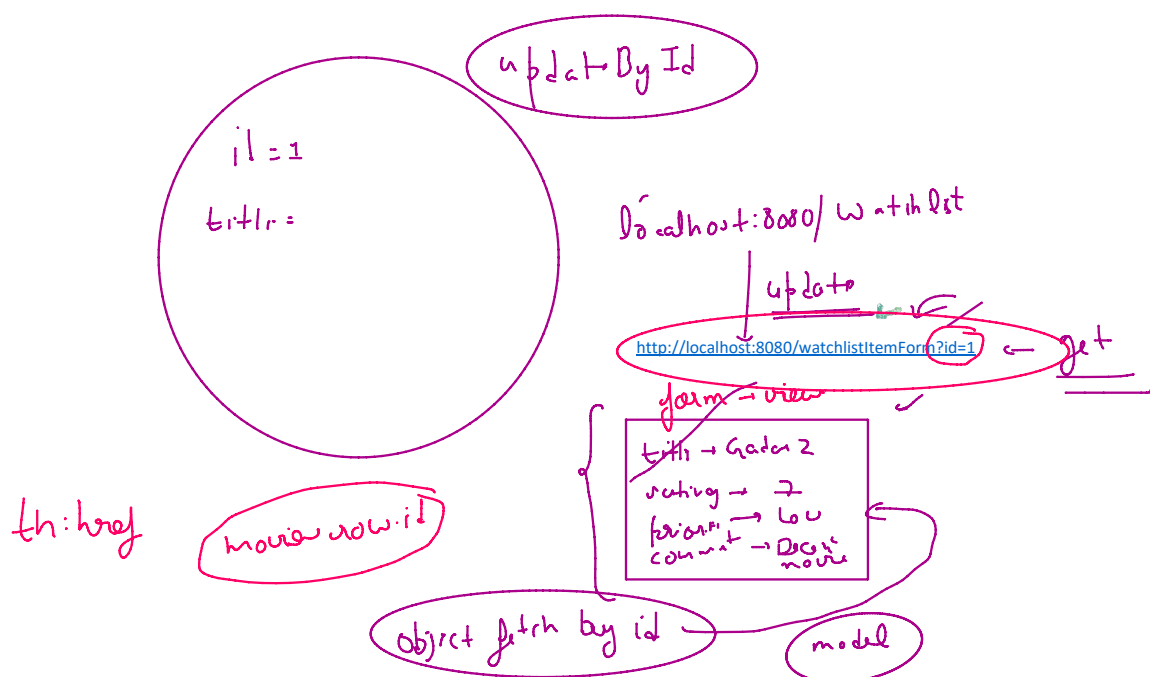 updateById
id = 1
title =
localhost:8080/watchlist
update
http://localhost:8080/watchlistItemForm?id=1 ← get
form → view
title → Gadar 2
rating → 7
priority → Low
comment → Decent movie
th:href
movierow.id
object fetch by id
model